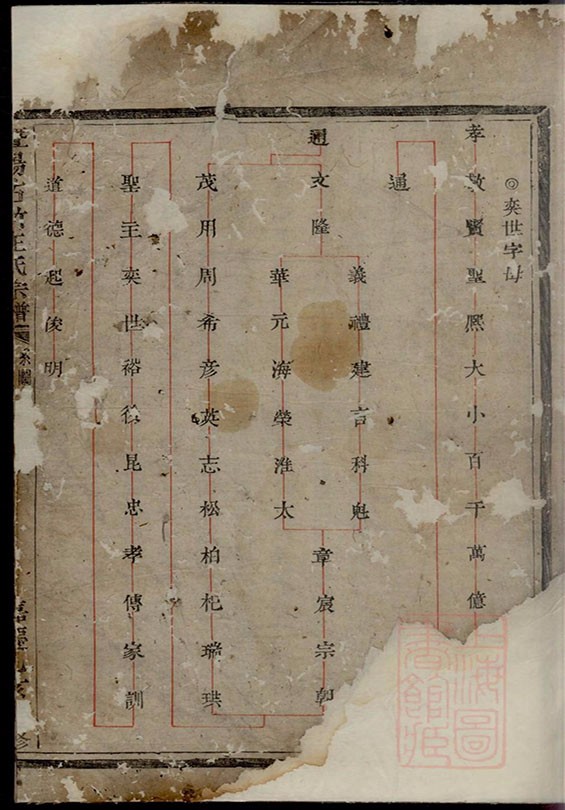 ◎奕世字母
孝敬賢聖熈大小百千萬億
通
義禮建言科魁
通文隆
華元海榮淮太
章宸宗朝
茂用周希彥英志松柏杞瑞珙
聖主奕世裕後昆忠孝傳家訓
道德起俊明
氏宗譜
上海圖書館藏